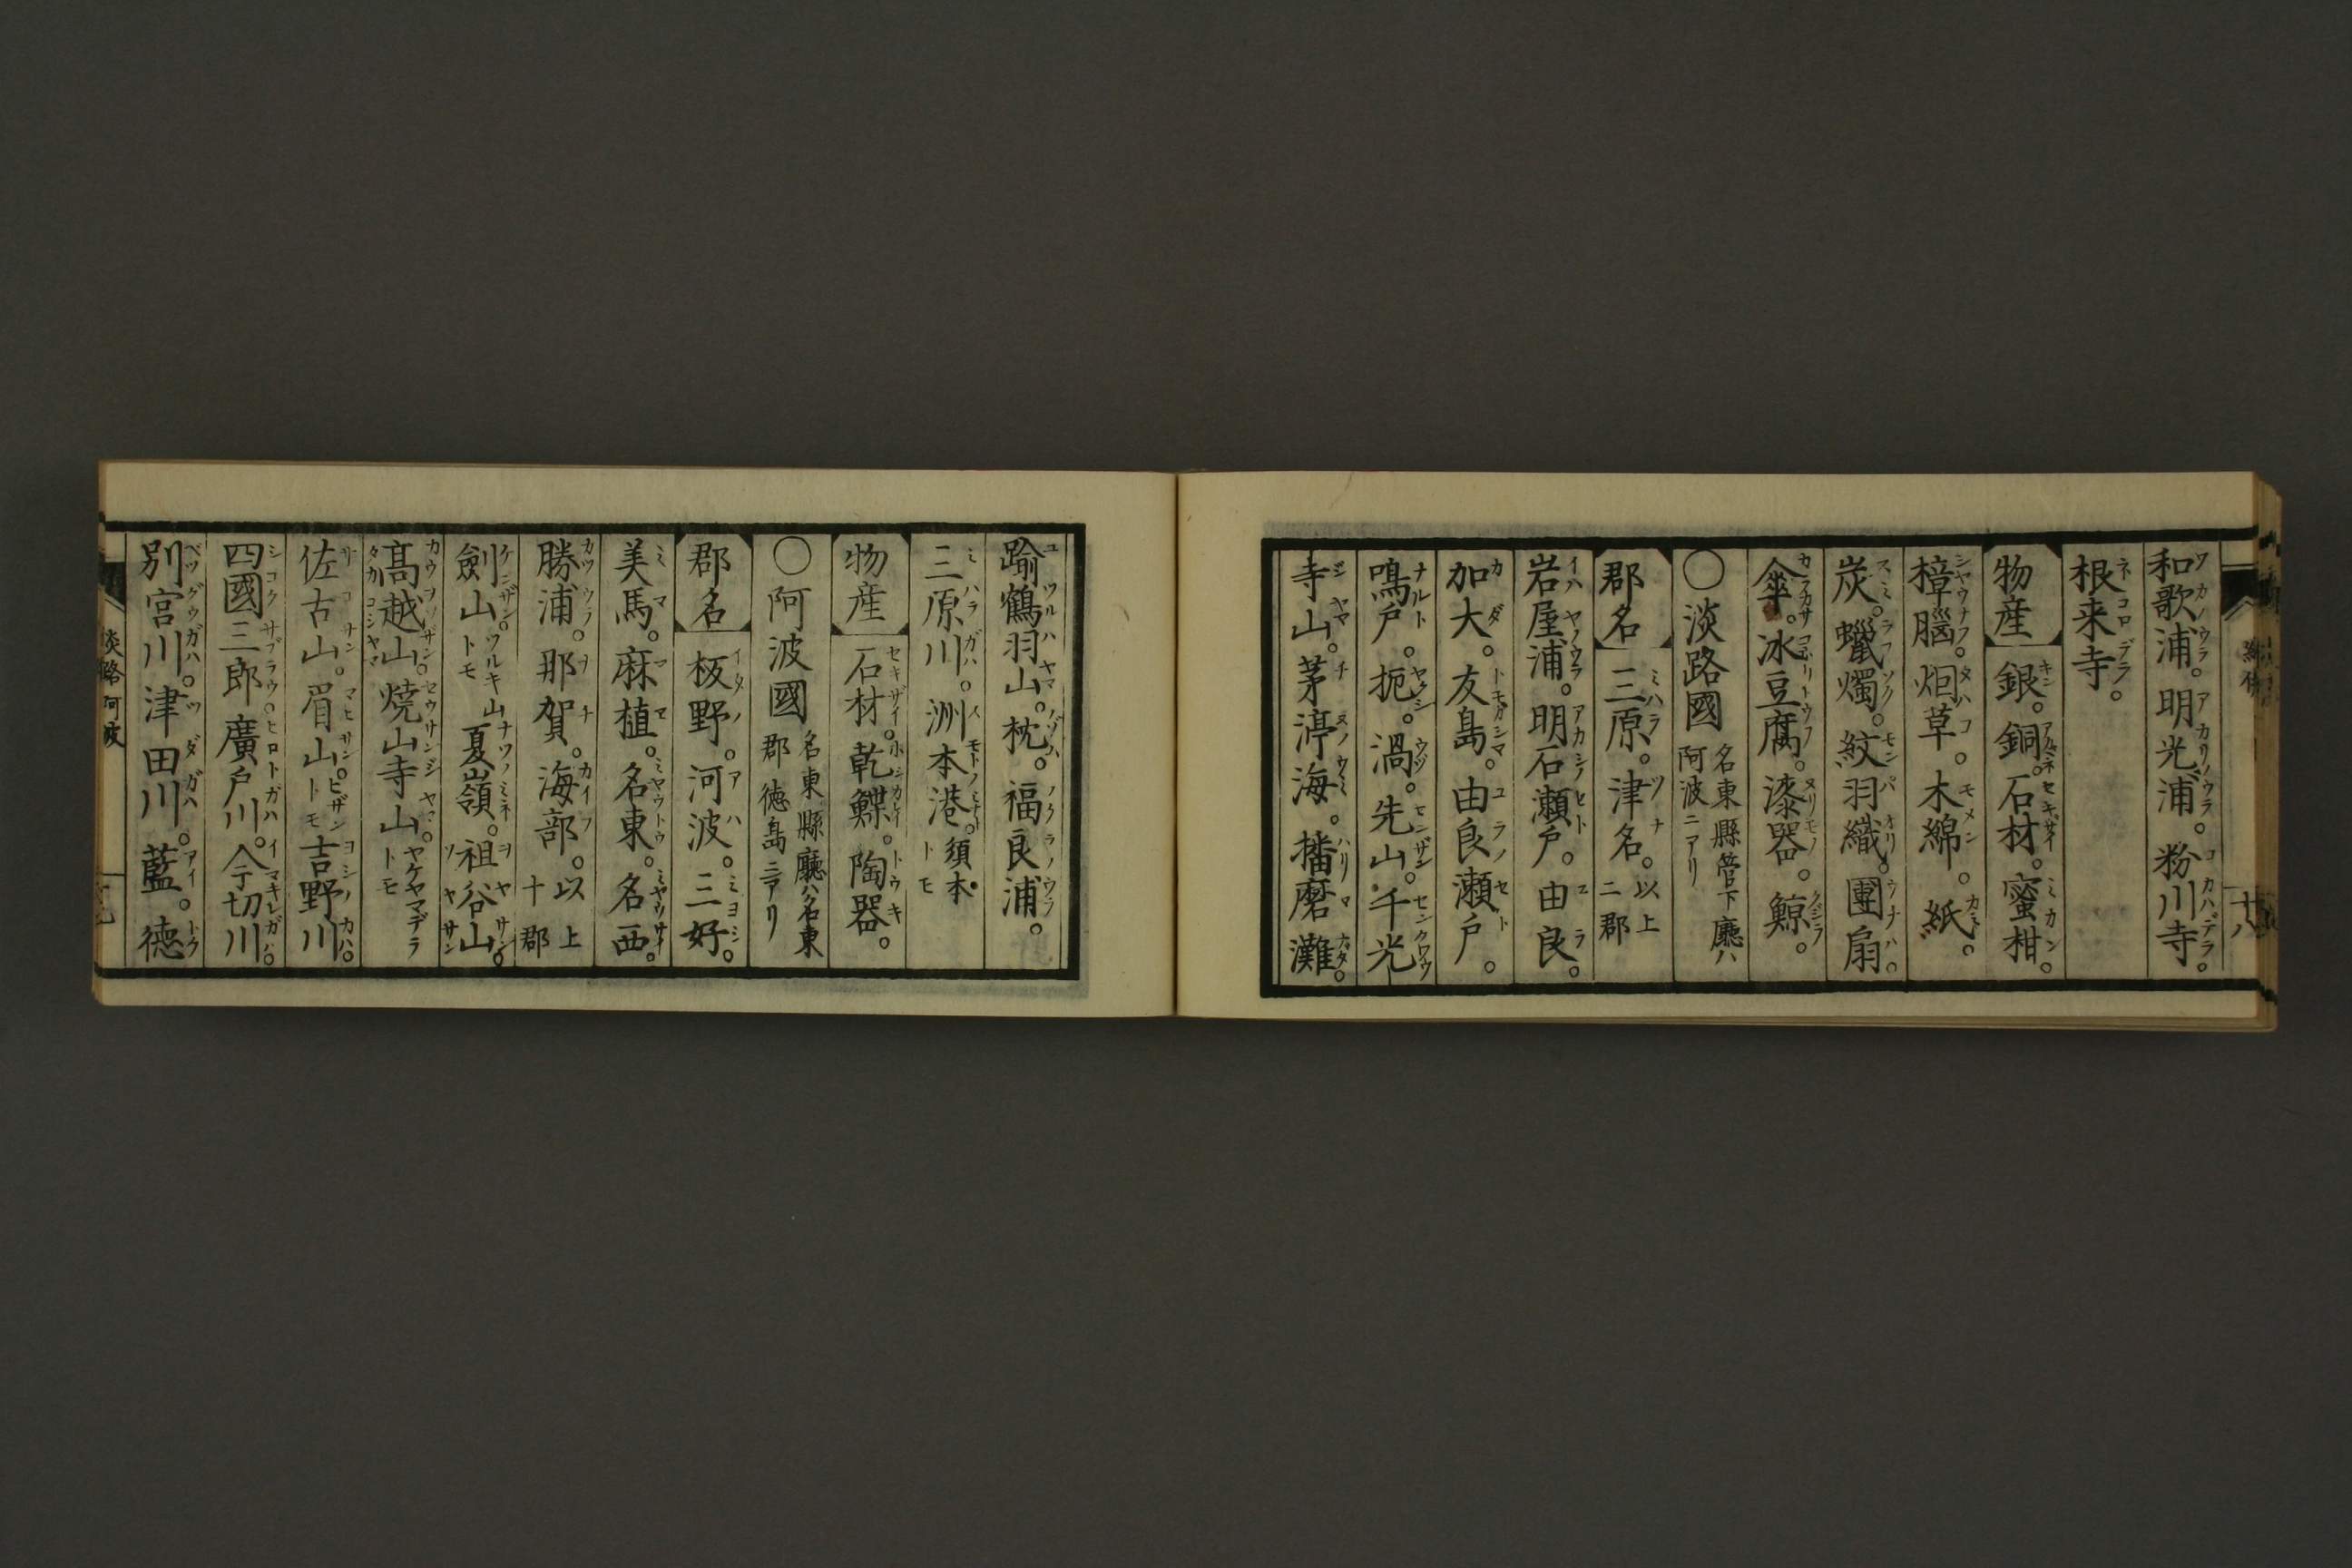 和歌浦。明光浦。粉川寺。
根来寺。
物産 銀。銅。石材。蜜柑。
樟腦。烟草。木綿。紙。
炭。蠟燭。紋羽織。團扇。
傘。冰豆腐。漆器。鯨。
○淡路國 名東縣管下廳ハ阿波ニアリ
郡名 三原。津名。以上二郡
岩屋浦。明石瀬戸。由良。
加大。友島。由良瀬戸。
鳴戸。扼。渦。先山。千光
寺山。茅渟海。播磨灘。
踰鶴羽山。枕。福良浦。
三原川。洲本港。須本トモ
物産 石材。乾鰈。陶器。
○阿波國 名東縣廳ハ名東郡徳島ニアリ
郡名 板野。阿波。三好。
美馬。麻植。名東。名西。
勝浦。那賀。海部。以上十郡
劍山。ツルキ山トモ 夏嶺。祖谷山。
髙越山。燒山寺山。ヤケヤマデラトモ
佐古山。眉山。ビザントモ 吉野川。
四國三郎。廣戸川。今切川。
別宮川。津田川。藍。徳
淡路 阿波